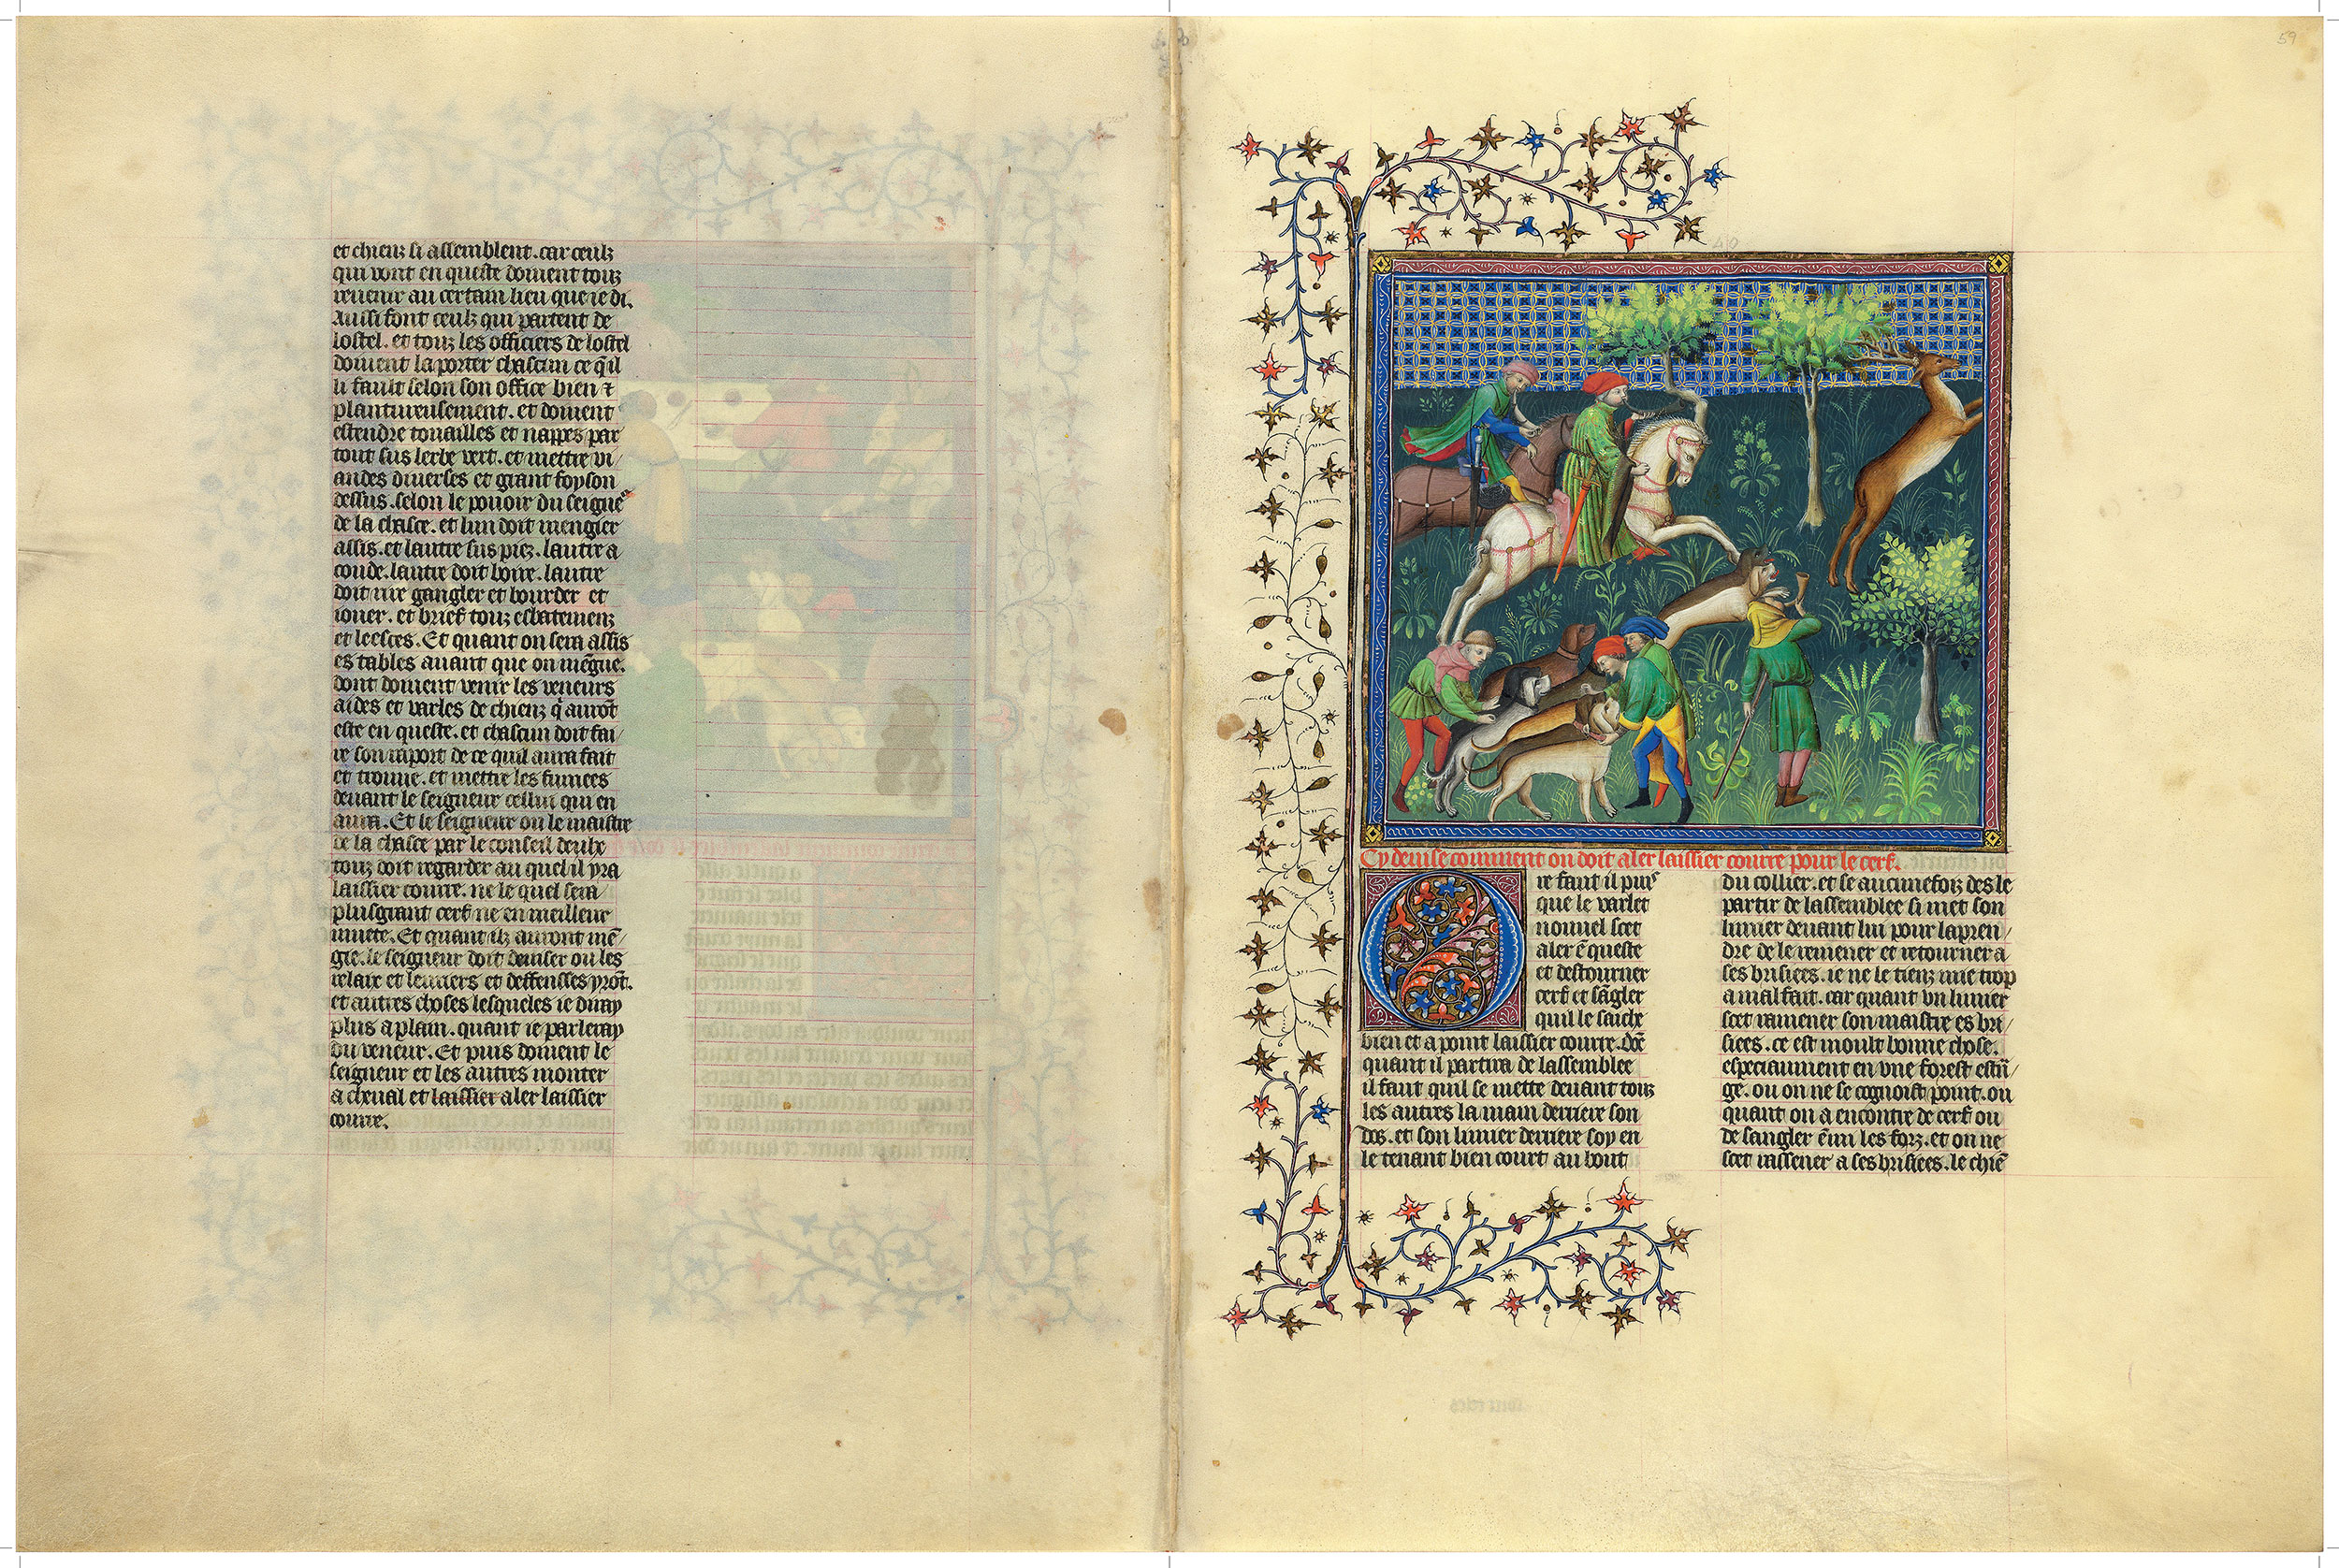 et chienz si assemblent. car ceulz
qui vont en queste doivent touz
revenir au certain lieu que ie di.
Aussi font ceulz qui partent de
lostel. et touz les officiers de lostel
doivent la porter chascun ce q̄ il
li fault selon son office bien ⁊
plantureusement. et doivent
estendre touailles et nappes par
tout sus lerbe vert. et mettre vi/
andes diverses et grant foyson
dessus. selon le pouoir du seigneᵘʳ
de la chasce. et lun doit mengier
assis. et lautre sus piez. lautre a
coude. lautre doit boire. lautre
doit rire gangler et bourder et
iouer. et brief touz esbatemenz
et leesces. Et quant on sera assis
es tables avant que on mēgue.
dont doivent venir les veneurs
aides et varles de chienz q̄ aurōt
este en queste. et chascun doit fai/
re son raport de ce quil aura fait
et trouve. et mettre les fumees
devant le seigneur cellui qui en
aura. Et le seigneur ou le maistre
de la chasce par le conseil deulx
touz doit regarder au quel il yra
laissier courre. ne le quel sera
plus grant cerf ne en meilleur
muete. Et quant ilz auront mē/
gie. le seigneur doit deviser ou les
relaix et levriers et deffensses yrōt.
et autres choses lesqueles ie diray
plus a plain. quant ie parleray
du veneur. Et puis doivent le
seigneur et les autres monter
a cheval et laissier aler laissier
courre.
59
40
Cy devise comment on doit aler laissier courre pour le cerf.
Ore faut il puis
que le varlet
nouvel scet
aler ē queste
et destourner
cerf et sāgler
quil le saiche
bien et a point laissier courre. Dōc
quant il partira de lassemblee
il faut quil se mette devant touz
les autres la main derriere son
dos. et son limier derriere soy en
le tenant bien court au bout
du collier. et se aucunefoiz des le
partir de lassemblee si met son
limier devant lui pour lapren/
dre de le remener et retourner a
ses brisiees. ie ne le tienz mie trop
a mal fait. car quant un limier
scet ramener son maistre es bri/
siees. ce est moult bonne chose.
especiaument en vne forest estrā/
ge. ou on ne se cognoist point. ou
quant on a encontre de cerf ou
de sangler ēmi les forz. et on ne
scet rassener a ses brisiees. le chiē